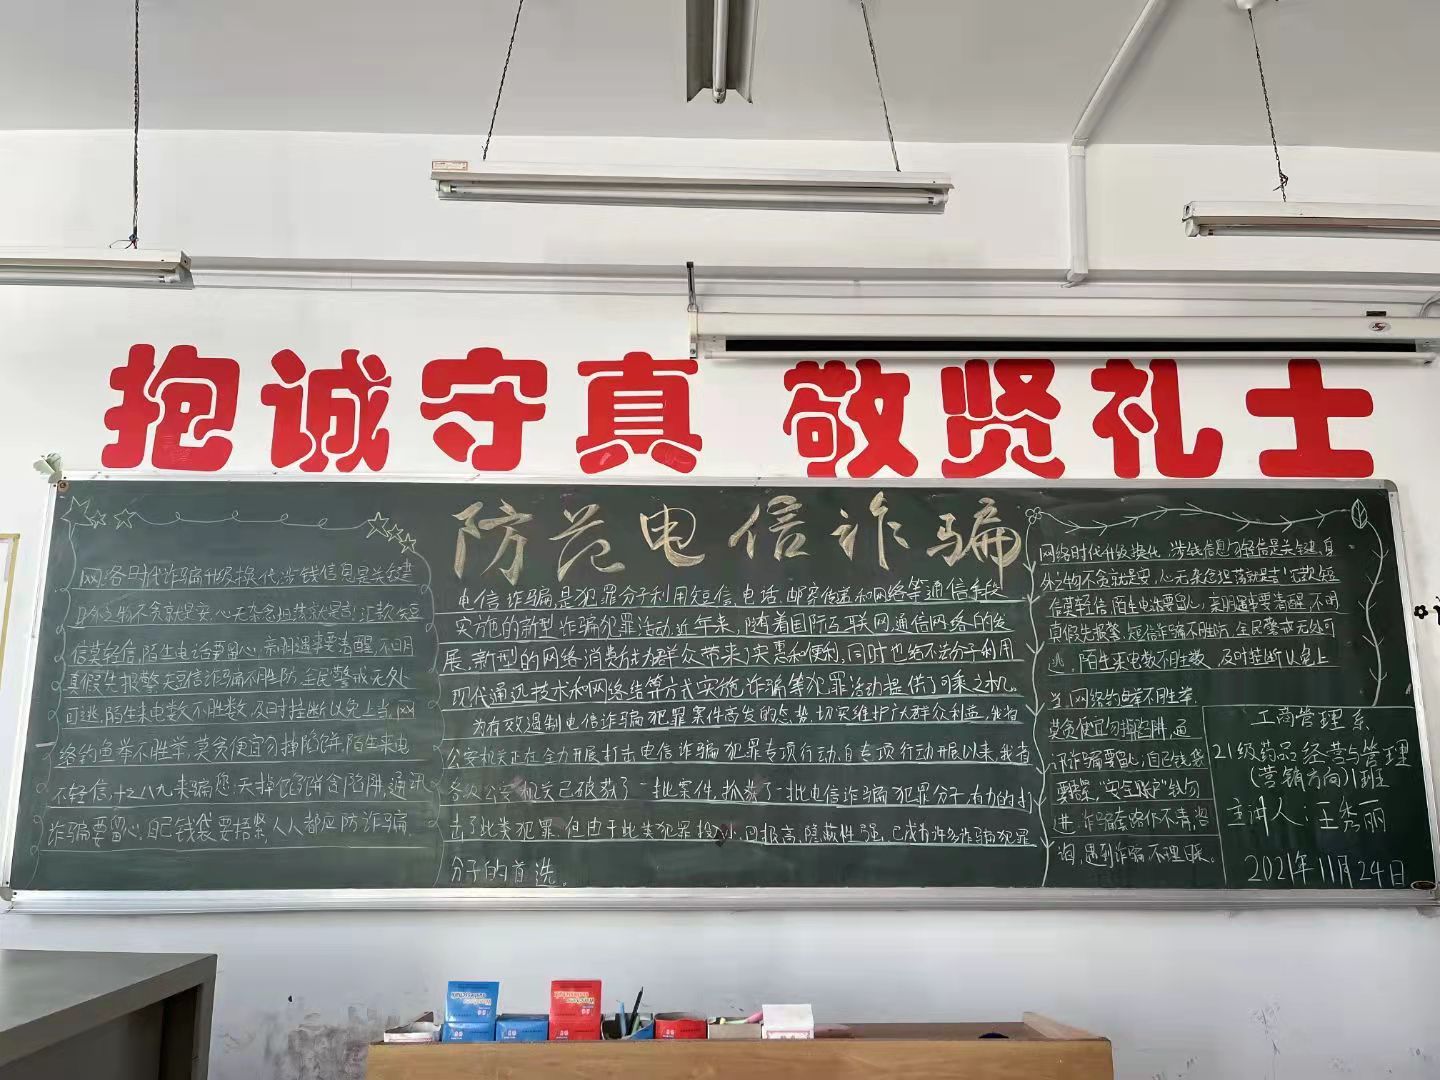 抱诚守真 敬贤礼士
防范电信诈骗
网络时代诈骗升级换代,涉钱信息是关键
身外之物不贪就是安,心无杂念坦荡就是言!汇款短
信莫轻信,陌生电话要留心,亲朋遇事要清醒,不明
真假先报警,短信诈骗不胜防,全民警戒无处
可逃,陌生来电数不胜数,及时挂断以免上当,网
络钓鱼举不胜举,莫贪便宜勿掉陷阱,陌生来电
不轻信,十之八九来骗您;天掉馅饼含陷阱,通讯
诈骗要留心,自己钱袋要捂紧,人人都应防诈骗.
电信诈骗,是犯罪分子利用短信、电话、邮寄传递和网络等通信手段
实施的新型诈骗犯罪活动,近年来,随着国际互联网,通信网络的发
展,新型的网络消费方式为群众带来了实惠和便利,同时也给不法分子利用
现代通迅技术和网络结算方式实施诈骗等犯罪活动提供了可乘之机。
为有效遏制电信诈骗犯罪案件高发的态势,切实维护广大群众利益,我省
公安机关正在全力开展打击电信诈骗犯罪专项行动,自专项行动开展以来,我省
各级公安机关已破获了一批案件,抓获了一批电信诈骗犯罪分子,有力的打
击了此类犯罪.但由于此类犯罪投小,回报高,隐蔽性强,已成为许多诈骗犯罪
分子的首选。
网络时代升级换代,涉钱信息勿轻信是关键,身
外之物不贪就是安,心无杂念坦荡就是言!汇款短
信莫轻信,陌生电话要留心,亲朋遇事要清醒,不明
真假先报警,短信诈骗不胜防,全民警戒无处可
逃,陌生来电数不胜数,及时挂断以免上
当,网络钓鱼举不胜举,
莫贪便宜勿掉陷阱,通
讯诈骗要留心,自己钱袋
要捂紧,"安全账户"终勿
进,诈骗套路分不清,咨
询,遇到诈骗不理睬。
工商管理系
21级药品经营与管理
(营销方向)1班
主讲人:王秀丽
2021年11月24日